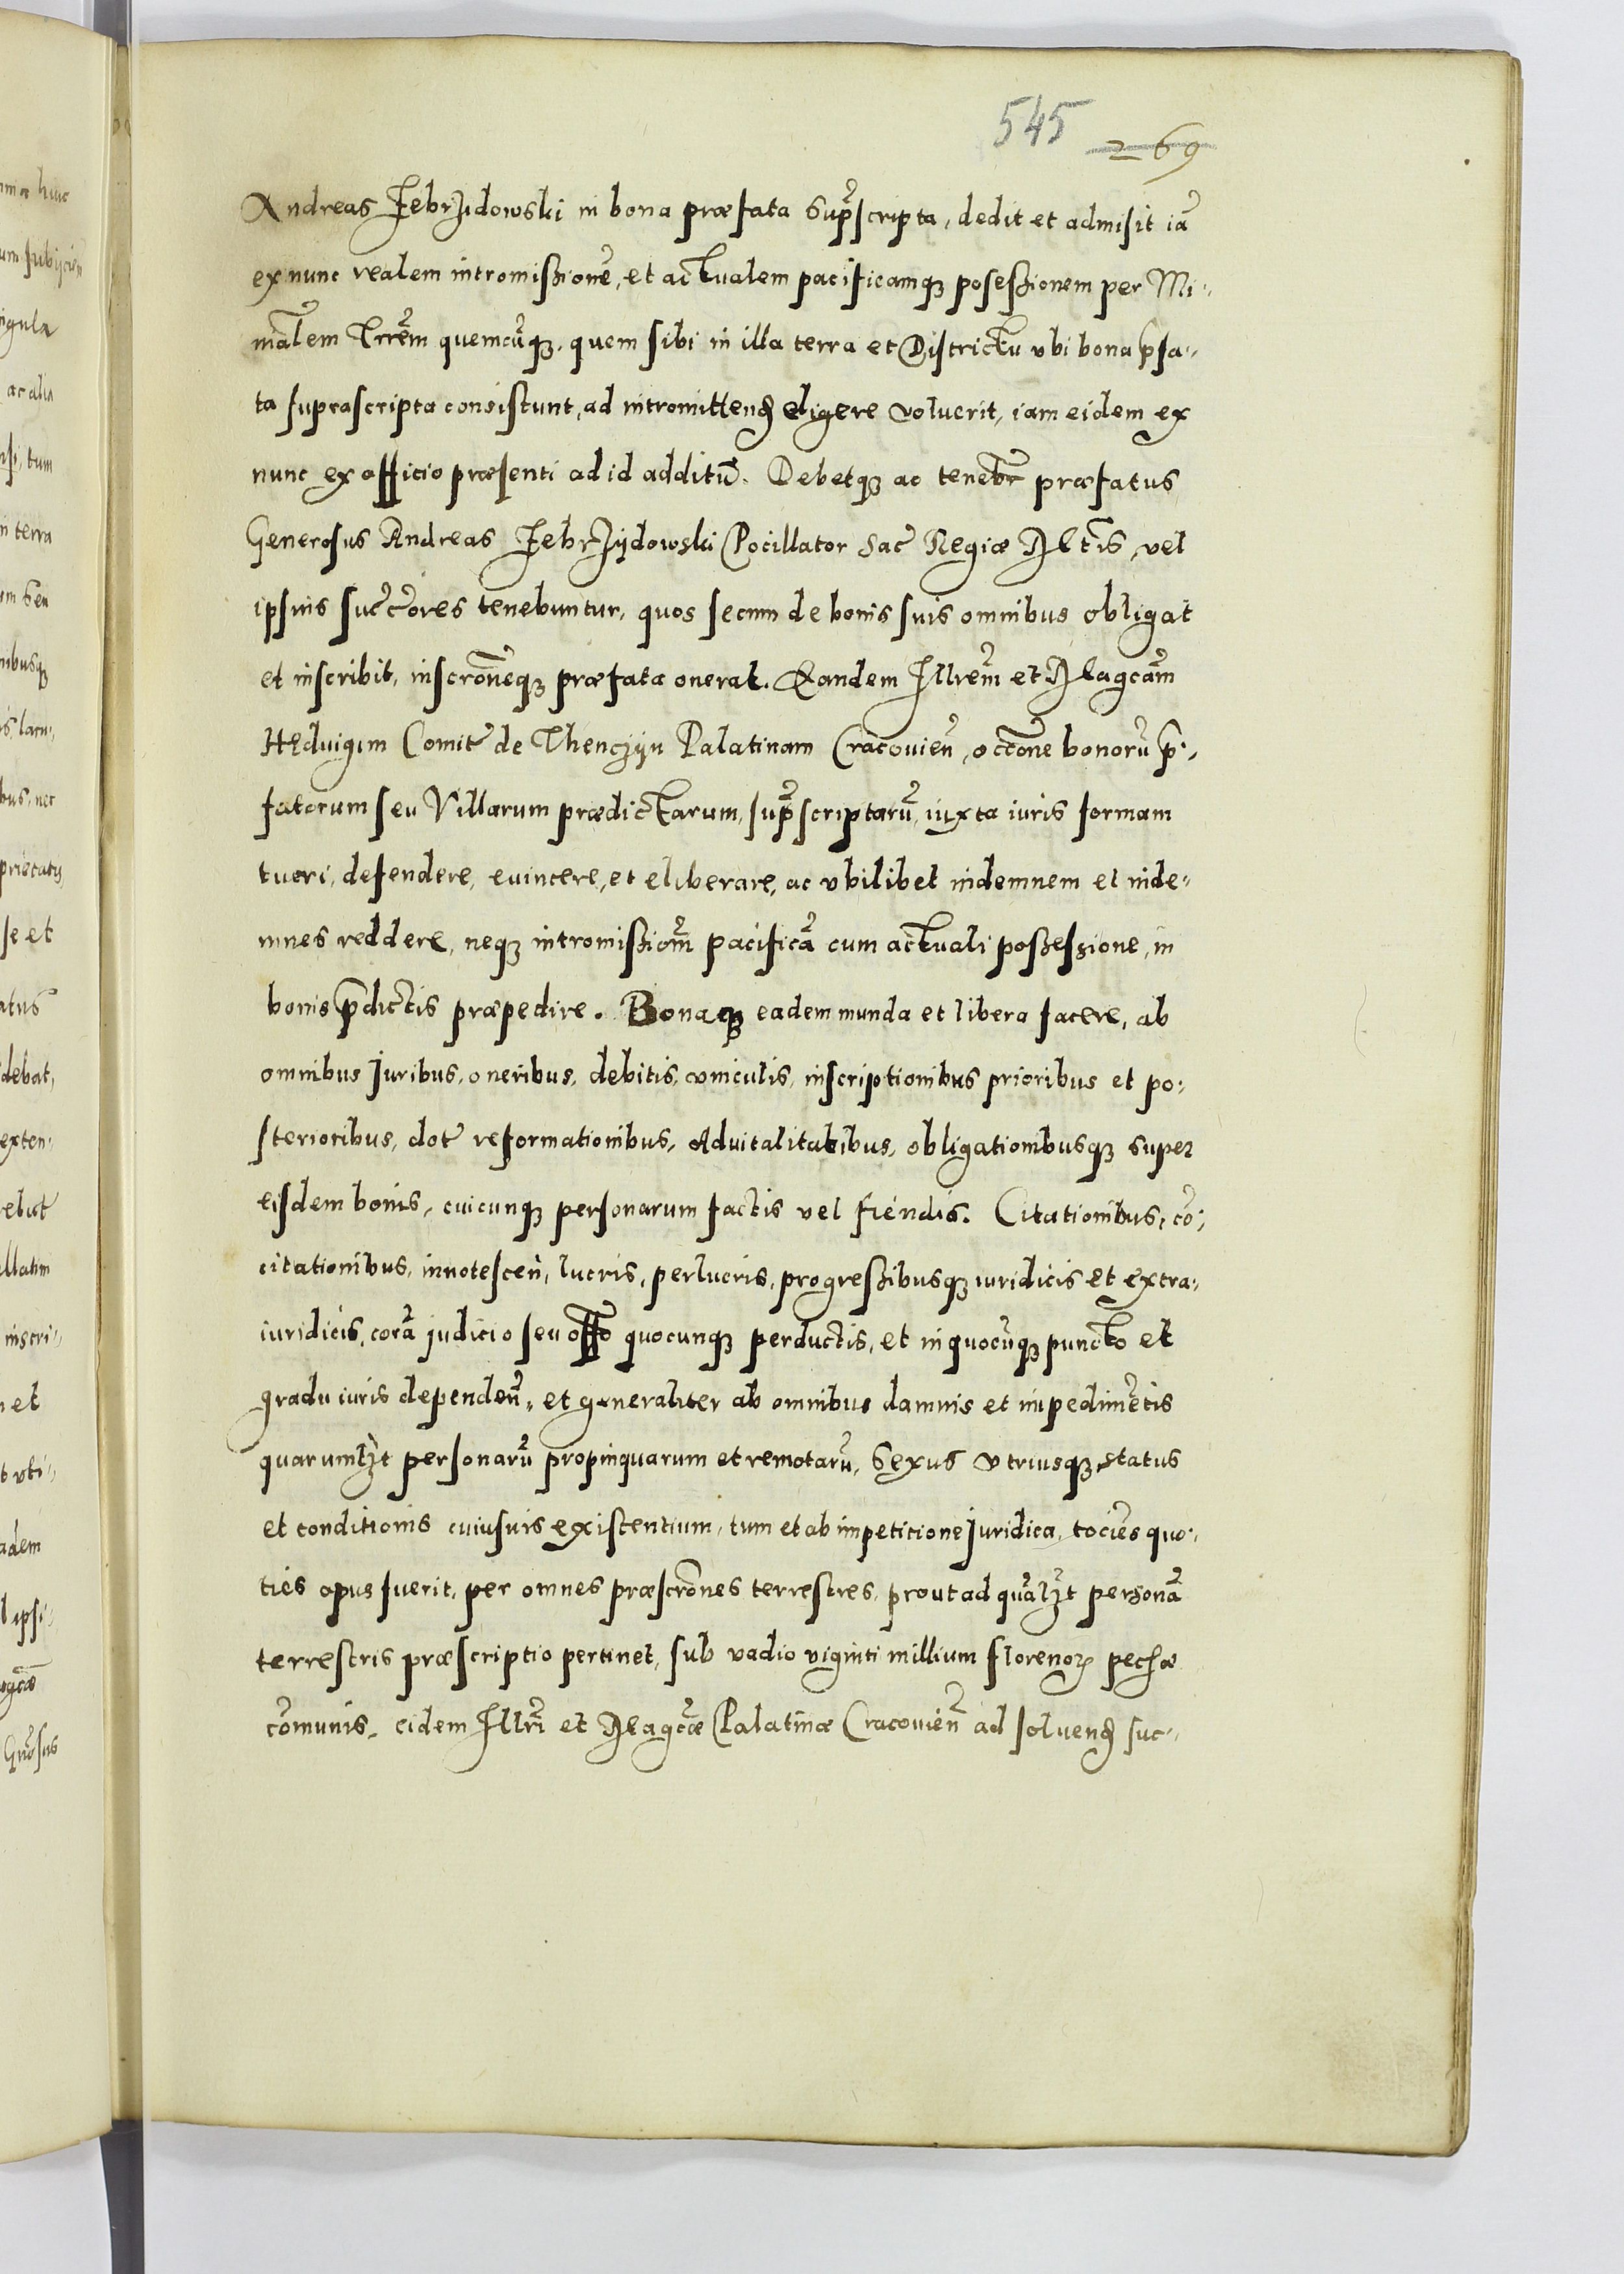 545 269
Andreas Zebrzidowski in bona præfata sup̃scripta, dedit et admisit iã
ex nunc realem intromißionẽ, et actualem pacificamqȝ poseßionem per Mi-
nĩalem Trrẽm quemcũqȝ, quem sibi in illa terra et Districtu vbi bona p̃fa-
ta suprascripta consistunt, ad intromittenđ eligere voluerit, iam eidem ex
nunc ex officio præsenti ad id additũ. Debetqȝ ac tenebr̃ præfatus
Generosus Andreas Zebrzÿdowski Pocillator Sac̃ Regiæ Mtĩs, vel
ipsius succ̃ores tenebuntur, quos secum de bonis suis omnibus obligat
et inscribit, inscrõneqȝ præfata onerat. Eandem Illrẽm et Magcãm
Heduigim Comit̃ de Thenczÿn Palatinam Cracouieñ, occõne bonorũ p̃-
fatorum seu Villarum prædictarum, sup̃scriptarũ, iuxta iuris formam
tueri, defendere, euincere, et eliberare, ac vbilibet indemnem et inde-
mnes reddere, neqȝ intromißiõm pacificã cum actuali poßeßione, in
bonis p̃dictis præpedire. Bonaqȝ eadem munda et libera facere, ab
omnibus Iuribus, oneribus, debitis, viniculis, inscriptionibus prioribus et po-
sterioribus, dot̃ reformationibus, Aduitalitatibus, obligationibusqȝ super
eisdem bonis, cuicunqȝ personarum factis vel fiendis. Citationibus, cõ-
citationibus, innotesceñ, lucris, perlucris, progreßibusqȝ iuridicis et extra-
iuridicis, corã judicio seu offõ quocunqȝ perductis, et in quocũqȝ puncto et
gradu iuris dependeñ, et generaliter ab omnibus damnis et impedimẽtis
quarumlȝt personarũ propinquarum et remotarũ, Sexus vtriusqȝ, status
et conditionis cuiusuis existentium, tum et ab impeticione Iuridica, tocies quo-
ties opus fuerit, per omnes præscrõnes terrestres, prout ad quãlȝt personã
terrestris præscriptio pertinet, sub vadio viginti millium florenoꝝ pechæ
cõmunis, eidem Illrĩ et Magcæ̃ Palatinæ Cracouieñ ad soluenđ suc-